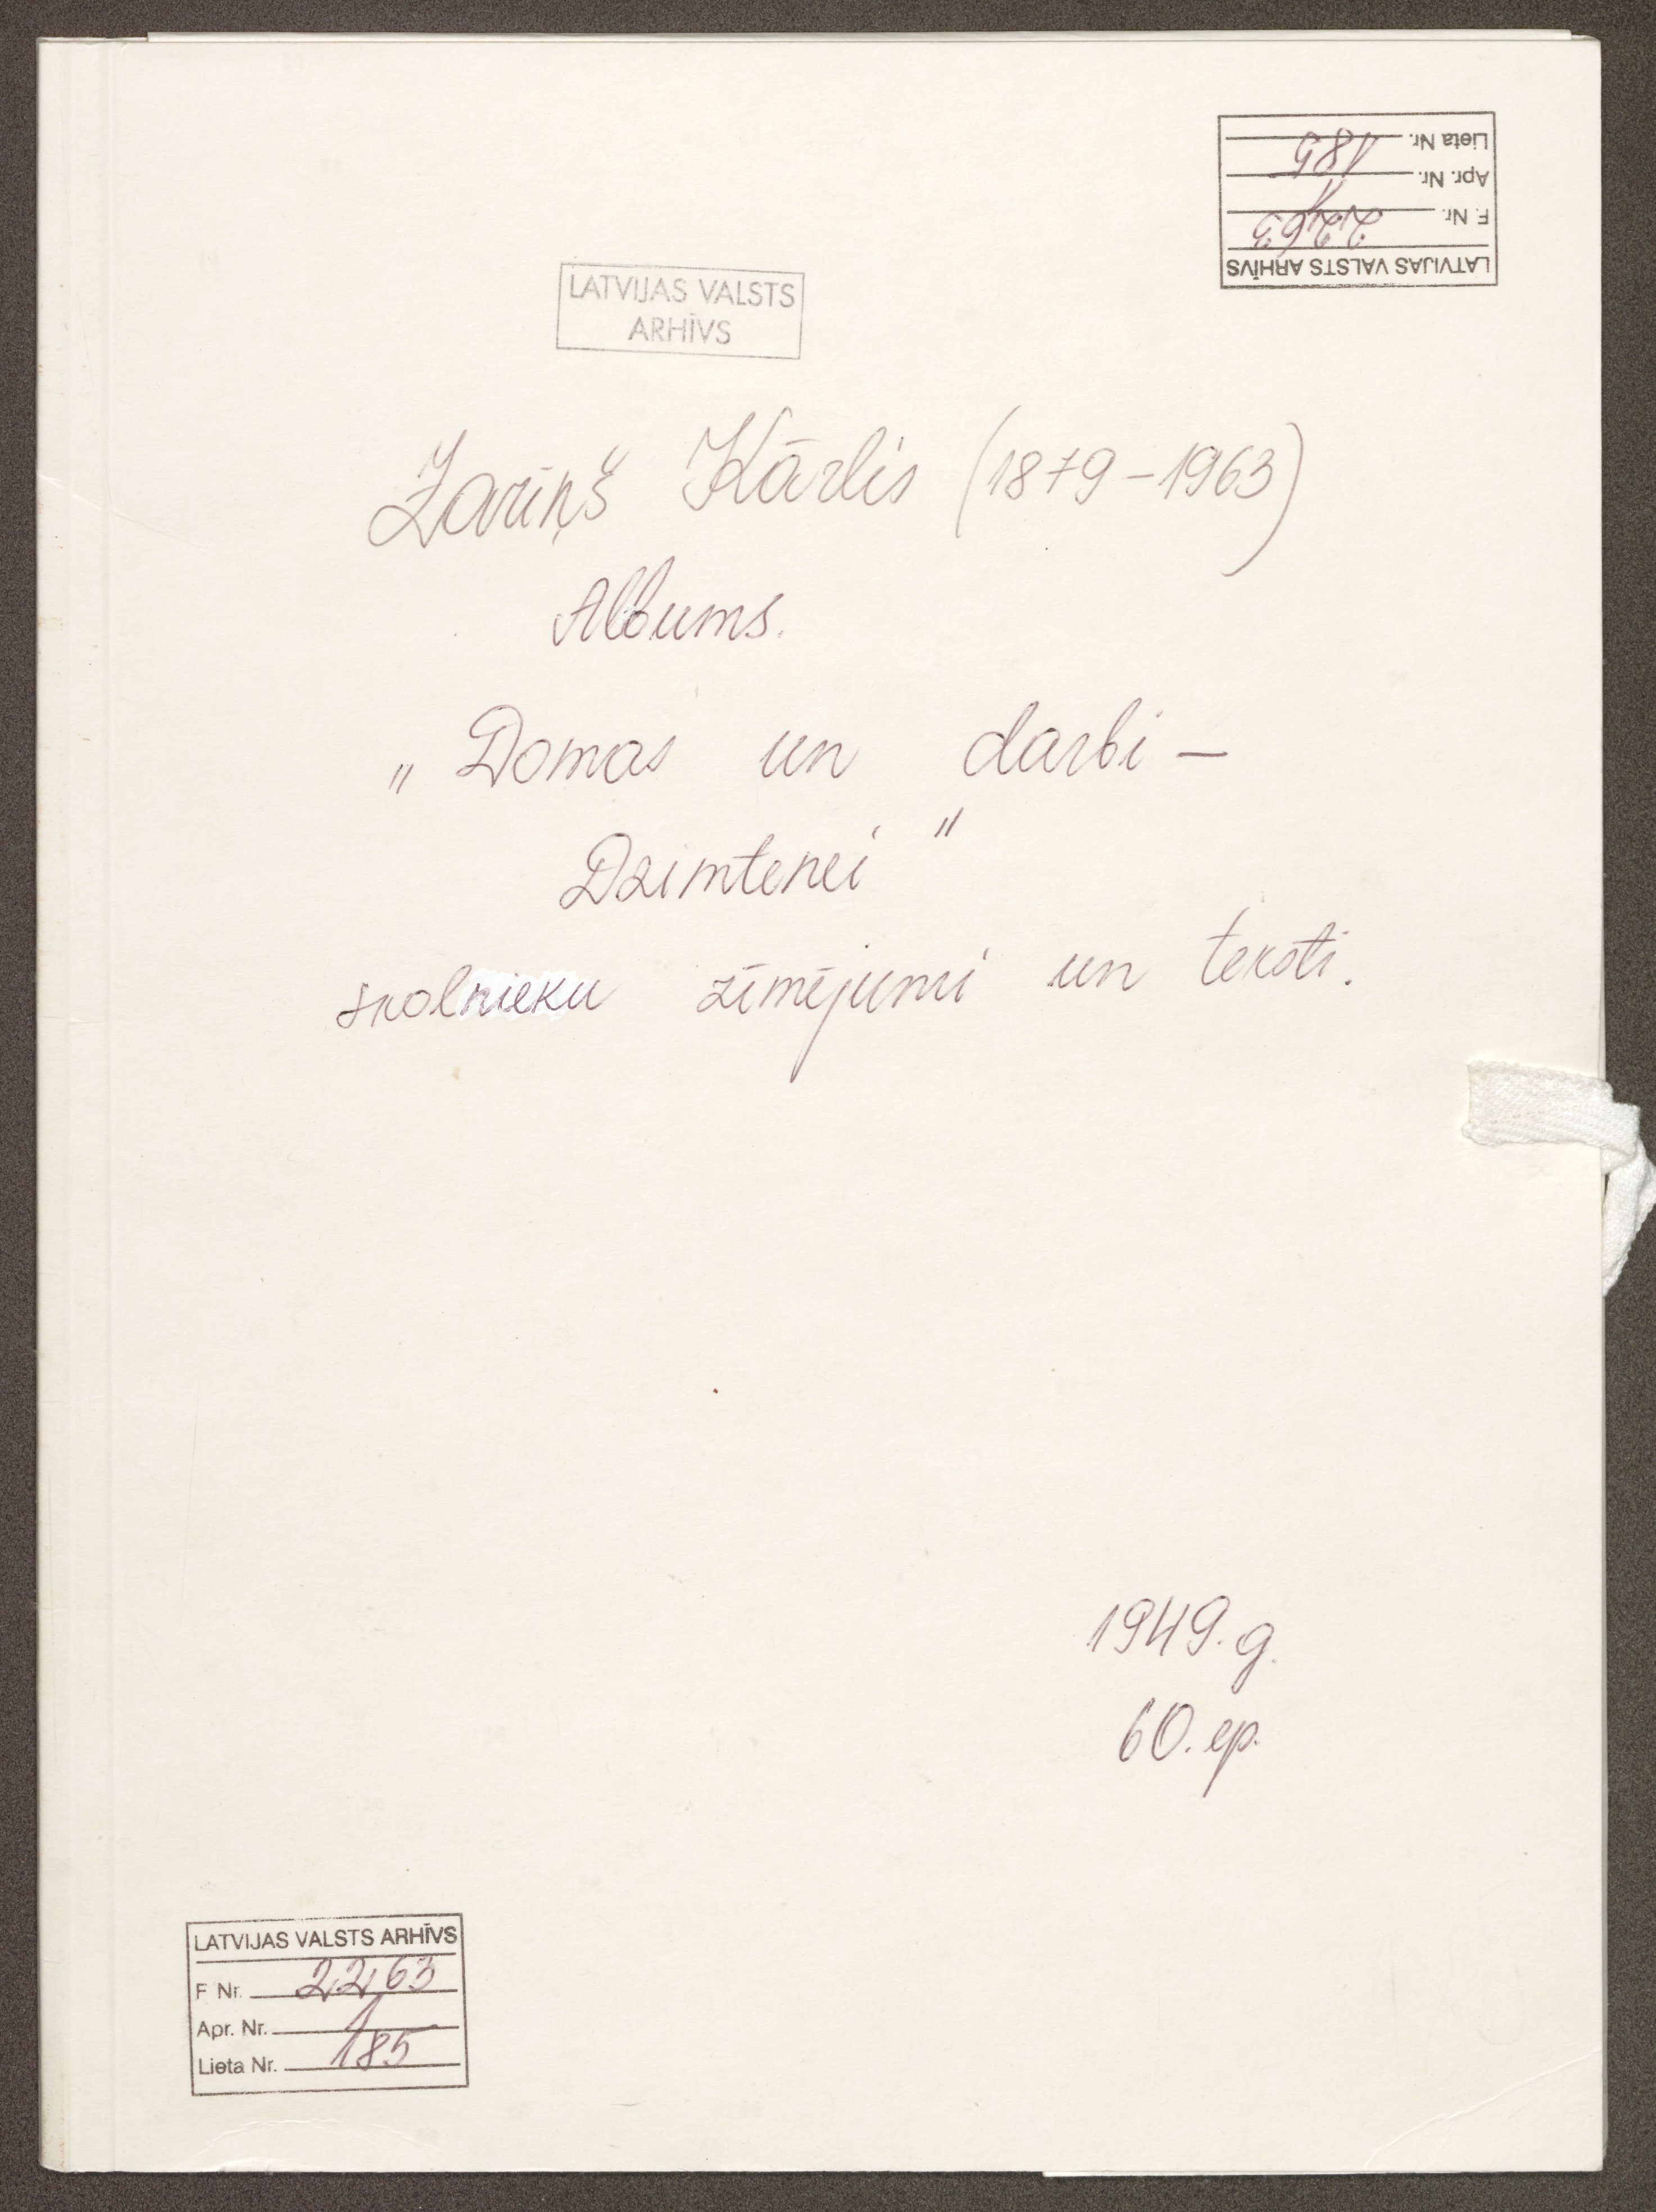 LATVIJAS VALSTS ARHĪVS
F. Nr. 2263
Apr. Nr. 1
Lieta Nr. 185
LATVIJAS VALSTS
ARHĪVS
Zariņš Kārlis (1879-1963)
Albums.
„Domas un darbi -
Dzimtenei"
skolnieku zīmējumi un teksti.
1949. g.
60. ep.
LATVIJAS VALSTS ARHĪVS
F Nr. 2263
Apr. Nr. 1
Lieta Nr. 185